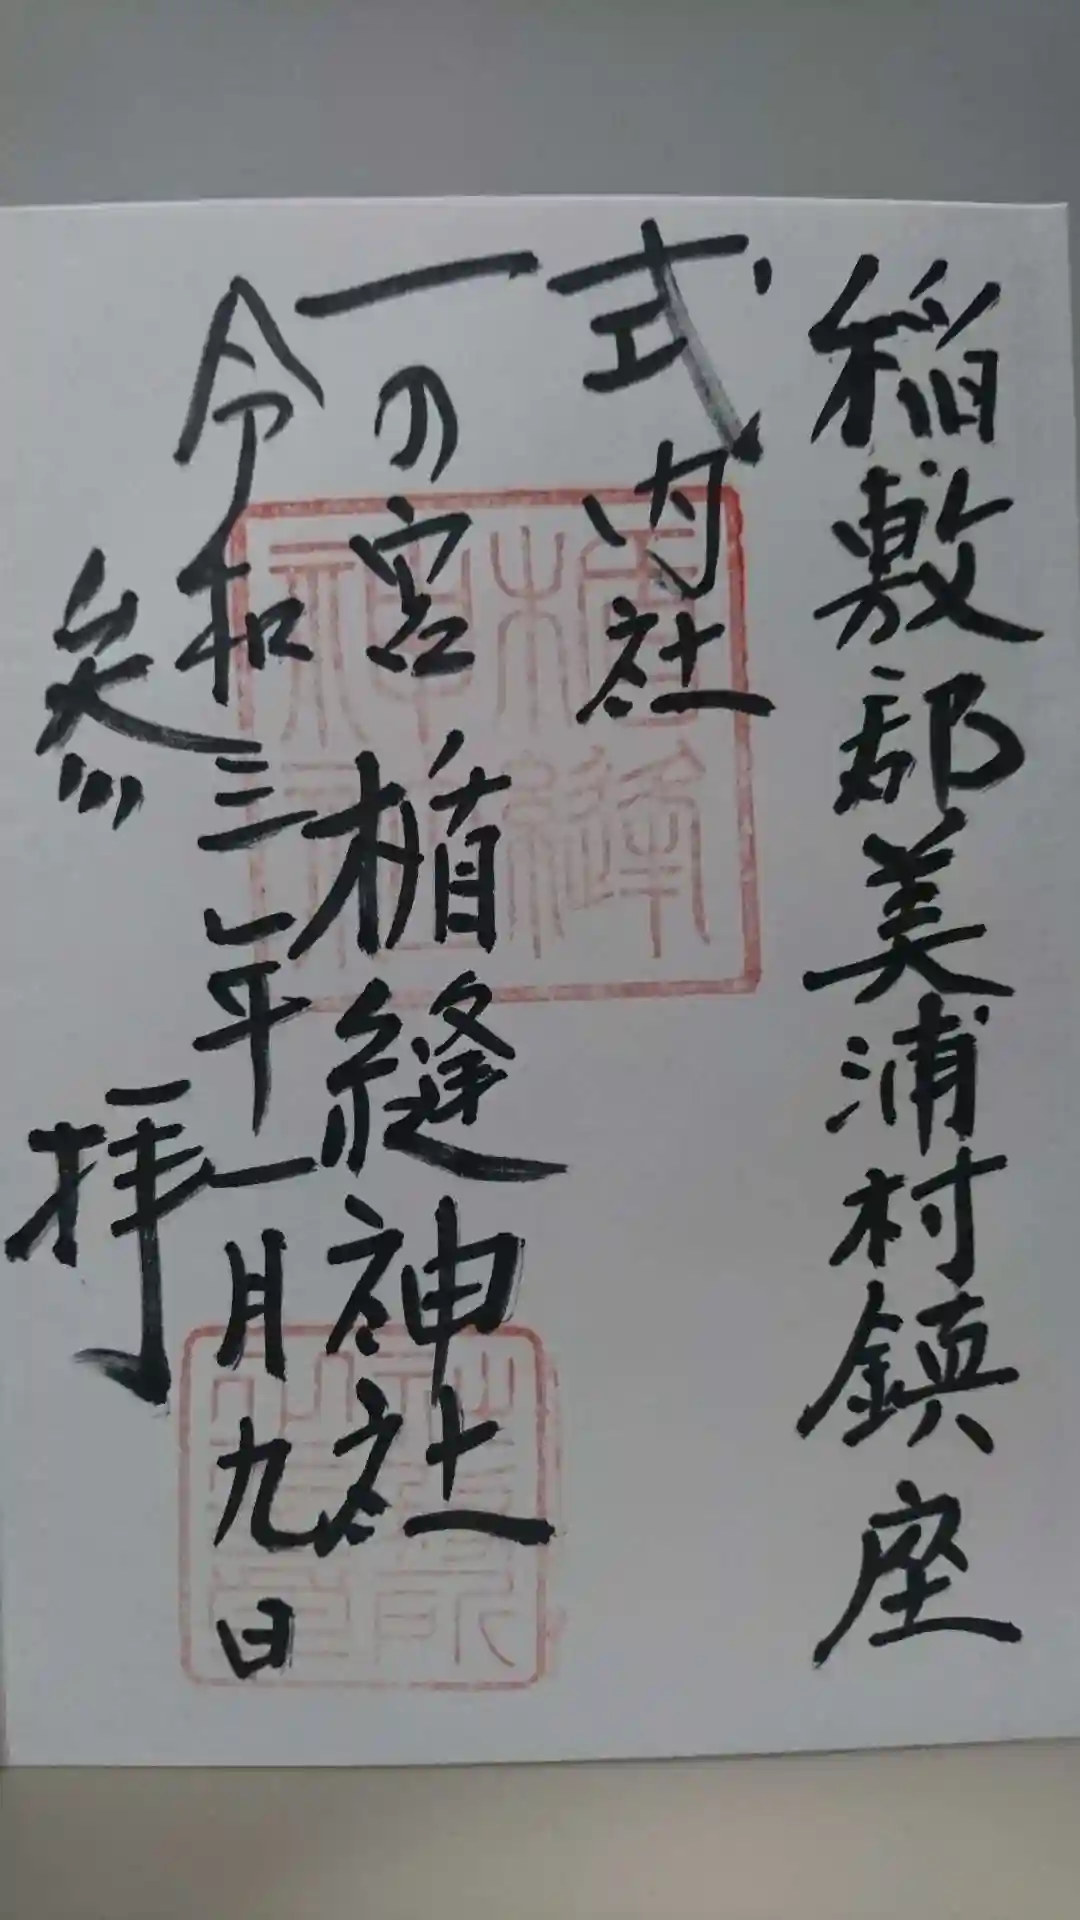 稲敷郡美浦村鎮座
式内社
一の宮 楯縫神社
令和三年一月九日
参拝
楯縫
神社